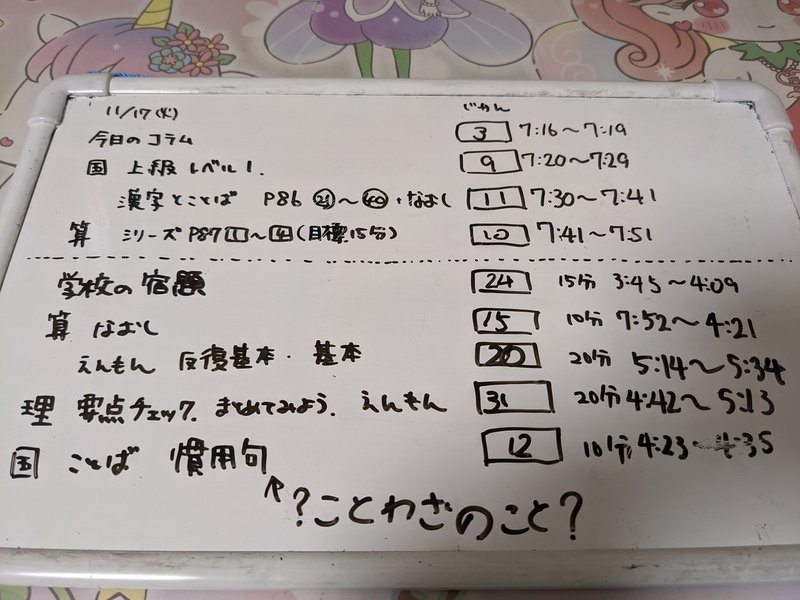 11/17(火) じかん
今日のコラム 3 7:16~7:19
国 上級レベル1. 9 7:20~7:29
漢字とことば P86 ㉑~㊵・なおし 11 7:30~7:41
算 シリーズP87 1~4(目標15分) 10 7:41~7:51
学校の宿題 24 15分 3:45~4:09
算 なおし 15 10分 7:52~4:21
えんもん 反復基本・基本 20 20分 5:14~5:34
理 要点チェック. まとめてみよう. えんもん 31 20分 4:42~5:13
国 ことば 慣用句 12 10分 4:23~4:35
↑?ことわざのこと?